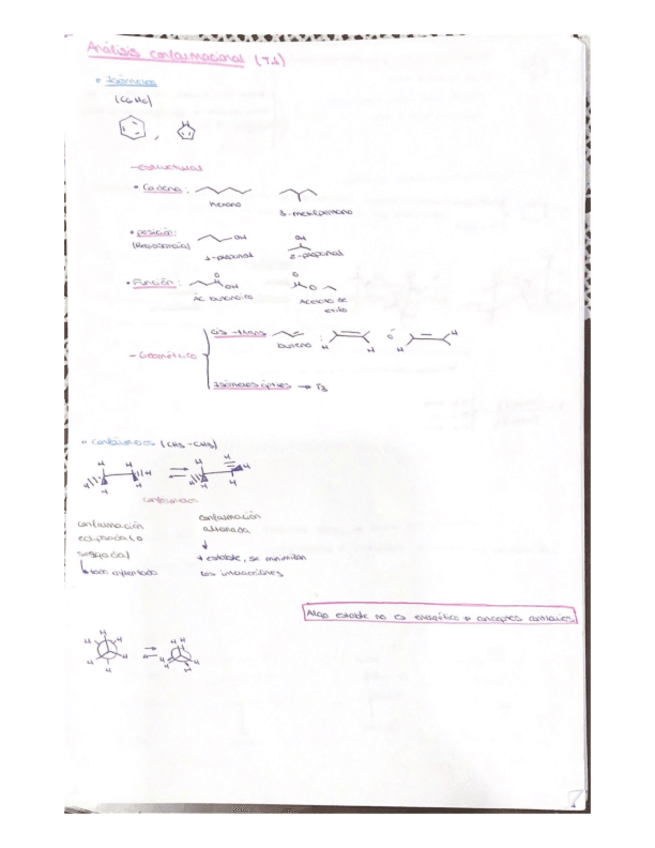 Análisis conformacional (T.1)
• Isómeros
(C6H6)
,
- estructural
• Cadena:
hexano
3-metilpentano
• posición:
(Regioisomería)
OH OH
1-propanol 2-propanol
• Función:
O OH O O
Ác. butanoico Acetato de
etilo
- Geométrico
cis-trans:
buteno : H H ó H H
Isómeros ópticos → T3
• Confórmeros (CH3-CH3)
H H H H H H
H H H H H H
confórmeros
conformación
eclipsada (o
sesgada)
↳ todo enfrentado
conformación
alternada
↓
+ estable, se minimizan
las interacciones
Algo estable no es energético → conceptos contrarios
H H H H H H
H H H H H H